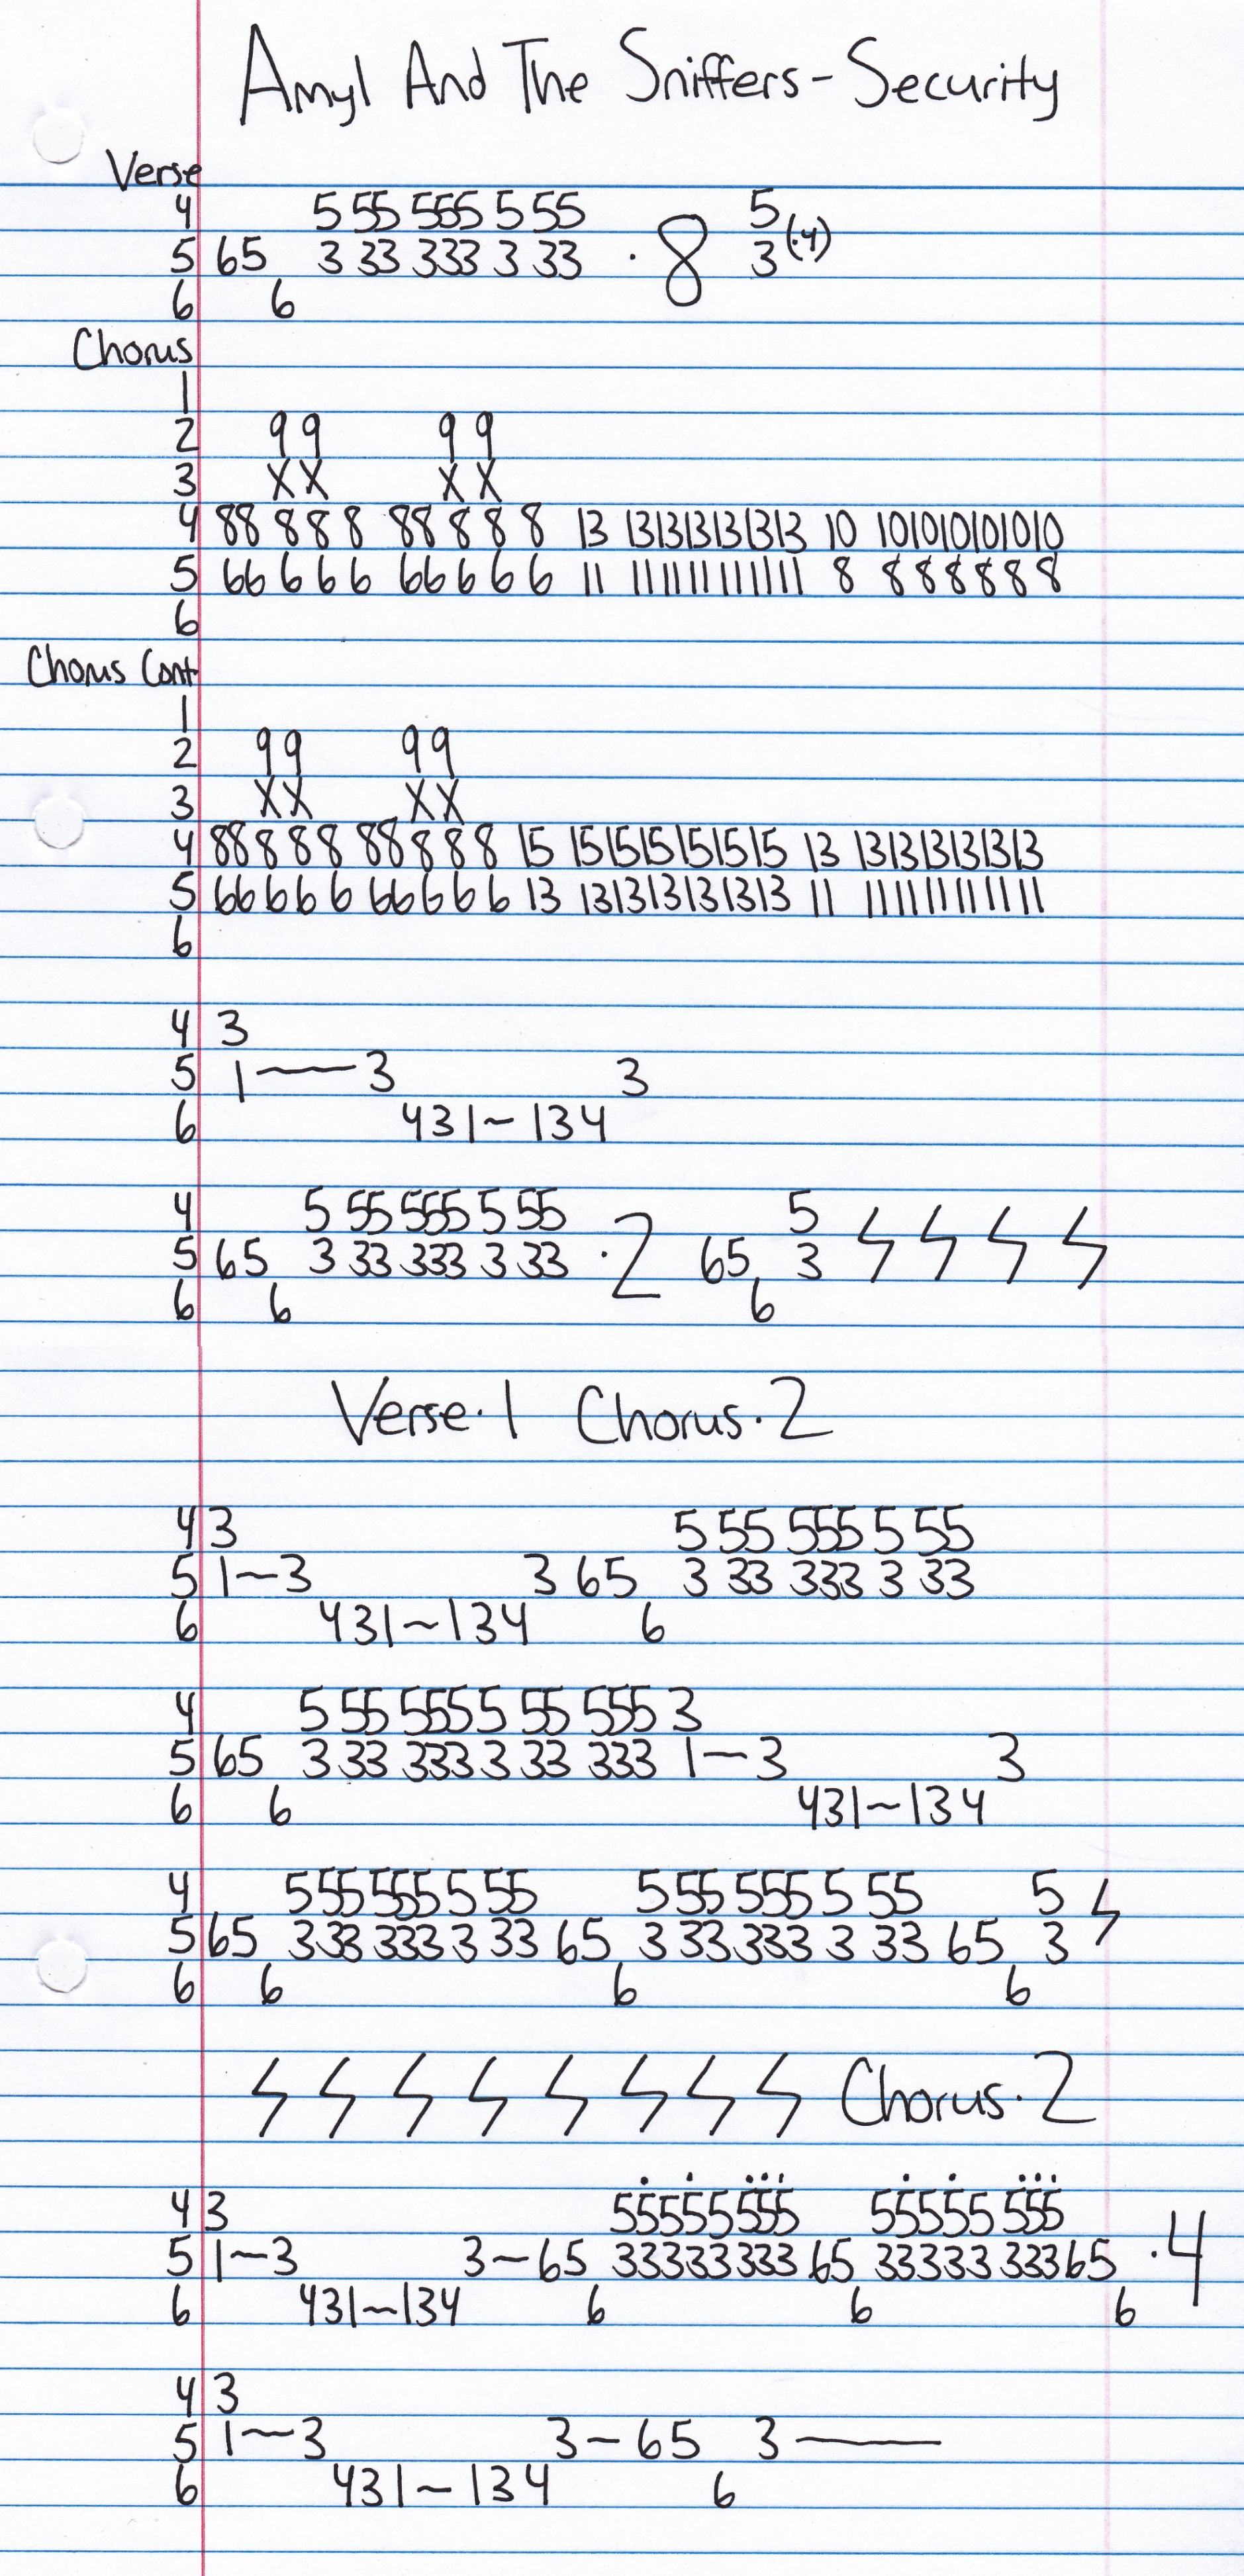 Amyl And The Sniffers - Security
Verse
4 5 55 555 5 55 5
5 65 3 33 333 3 33 · 8 3 (·4)
6 6
Chorus
1
2 9 9 9 9
3 X X X X
4 88 8 8 8 88 8 8 8 13 13 13 13 13 13 13 10 10 10 10 10 10 10
5 66 6 6 6 66 6 6 6 11 11 11 11 11 11 11 8 8 8 8 8 8 8
6
Chorus Cont
1
2 9 9 9 9
3 X X X X
4 88 8 8 8 88 8 8 8 15 15 15 15 15 15 15 13 13 13 13 13 13 13
5 66 6 6 6 66 6 6 6 13 13 13 13 13 13 13 11 11 11 11 11 11 11
6
4 3
5 1 — 3 3
6 431 ~ 134
4 5 55 555 5 55 5
5 65 3 33 333 3 33 · 2 65 3
6 6 6
Verse · 1 Chorus · 2
4 3 5 55 555 5 55
5 1 ~ 3 3 65 3 33 333 3 33
6 431 ~ 134 6
4 5 55 555 5 55 555 3
5 65 3 33 333 3 33 333 1 — 3 3
6 6 431 ~ 134
4 555 555 5 55 5 55 555 5 55 5
5 65 333 333 3 33 65 3 33 333 3 33 65 3
6 6 6 6
Chorus · 2
4 3 55555 555 55555 555
5 1 ~ 3 3 ~ 65 33333 333 65 33333 333 65 · 4
6 431 ~ 134 6 6 6
4 3
5 1 ~ 3 3 – 65 3 —
6 431 ~ 134 6